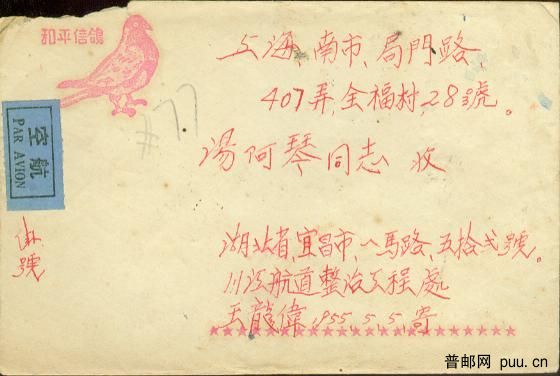 和平信鴿
上海、南市、局門路、
407弄,全福村,28號。
湯阿琴同志 收
空航
PAR AVION
#77
號
湖北省,宜昌市,一馬路、五拾弍號。
川江航道整治工程處
王龍偉,1955.5.5,寄
普邮网 puu.cn